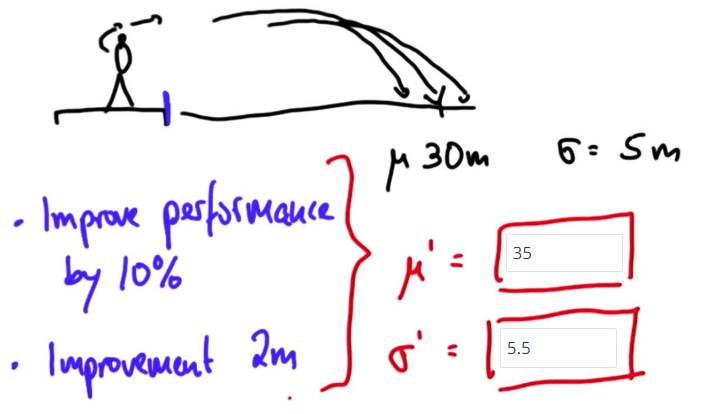 μ 30m σ = 5m
• Improve performance
by 10%
μ' = 35
• Improvement 2m
σ' = 5.5